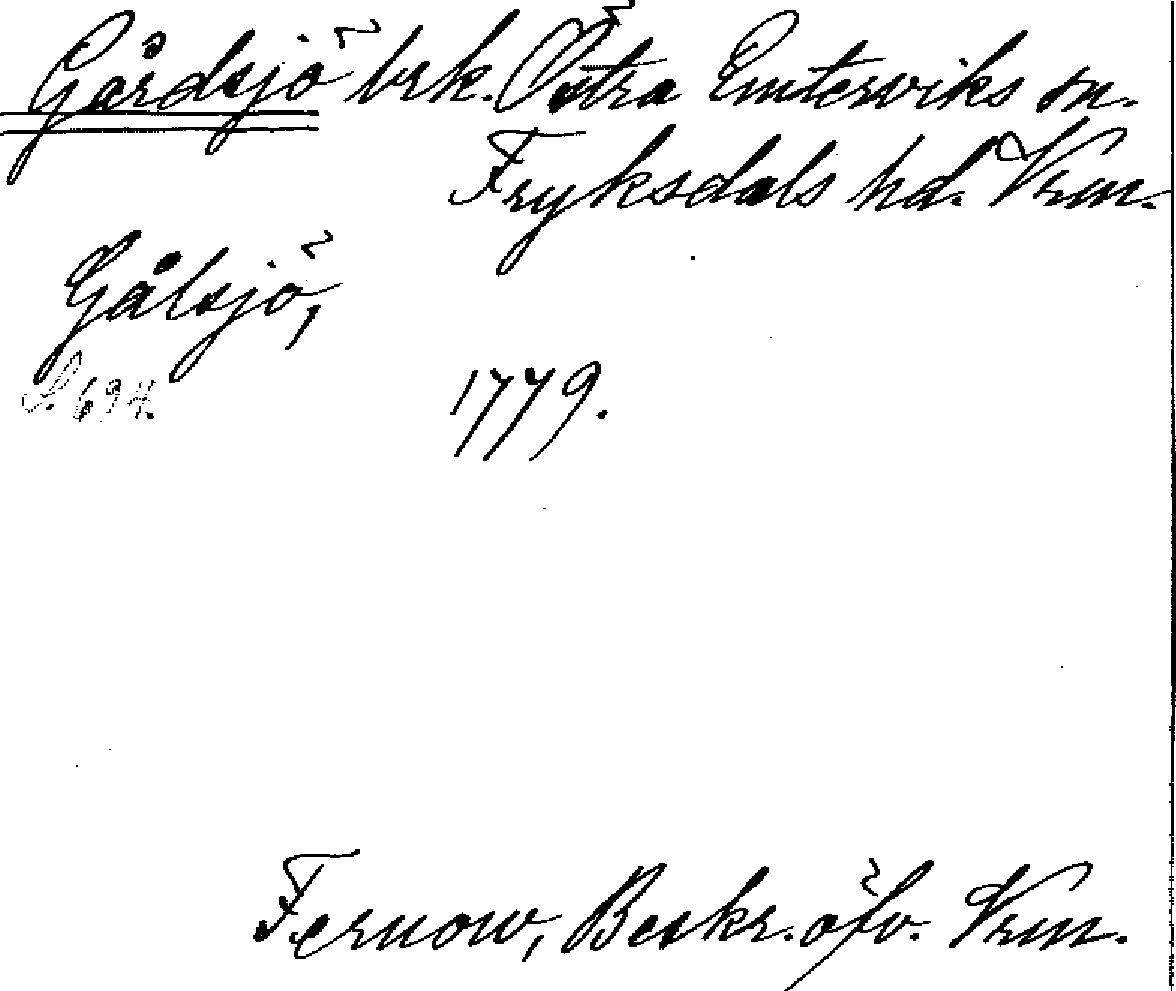 Gårdsjö brk. Östra Emterviks sn.
Fryksdals hd. Vrm.
Gålsjö,
S. 694.
1779.
Fernow, Beskr. öfv. Vrm.